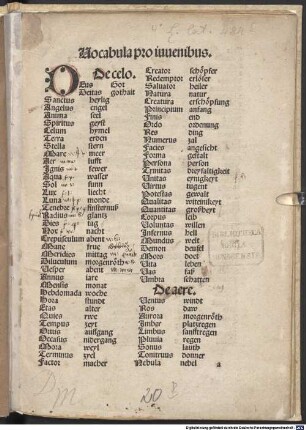 Vocabula pro iuuenibus.
De celo.
Deus Got
Deitas gothait
Sanctus heylig
Angelus engel
Anima seel
Spiritus geyst
Celum hymel
Terra erden
Stella stern
Mare meer
Aer lufft
Ignis fewer
Aqua wasser
Sol sunn
Lux liecht
Luna monde
Tenebre finsternuß
Radius glantz
Dies tag
Nox nacht
Crepusculum abent
Mane frue
Meridies mittag
Diluculum morgenröth
Vesper abent
Annus iare
Mensis monat
Hebdomada woche
Hora stundt
Etas alter
Quies rwe
Tempus zeyt
Ortus auffgang
Occasus nidergang
Mora weyl
Terminus zyel
Factor macher
Creator schöpfer
Redemptor erlöser
Saluator heiler
Natura natur
Creatura erschöpfung
Principium anfang
Finis end
Ordo ordenung
Res ding
Numerus zal
Facies angesicht
Forma gestalt
Persona person
Trinitas dryfaltigkeit
Unitas eynigkeyt
Virtus tugent
Potestas gewalt
Quantitas großheyt
Corpus leib
Voluntas willen
Infernus hell
Mundus welt
Demon teufel
Mors doet
Vita leben
Vas faß
Umbra schatten
De aere.
Ventus windt
Ros daw
Aurora morgenröth
Imber platzregen
Limbus sanfftregen
Pluuia regen
Sonus lauth
Tonitruus donner
Nebula nebel
a
20